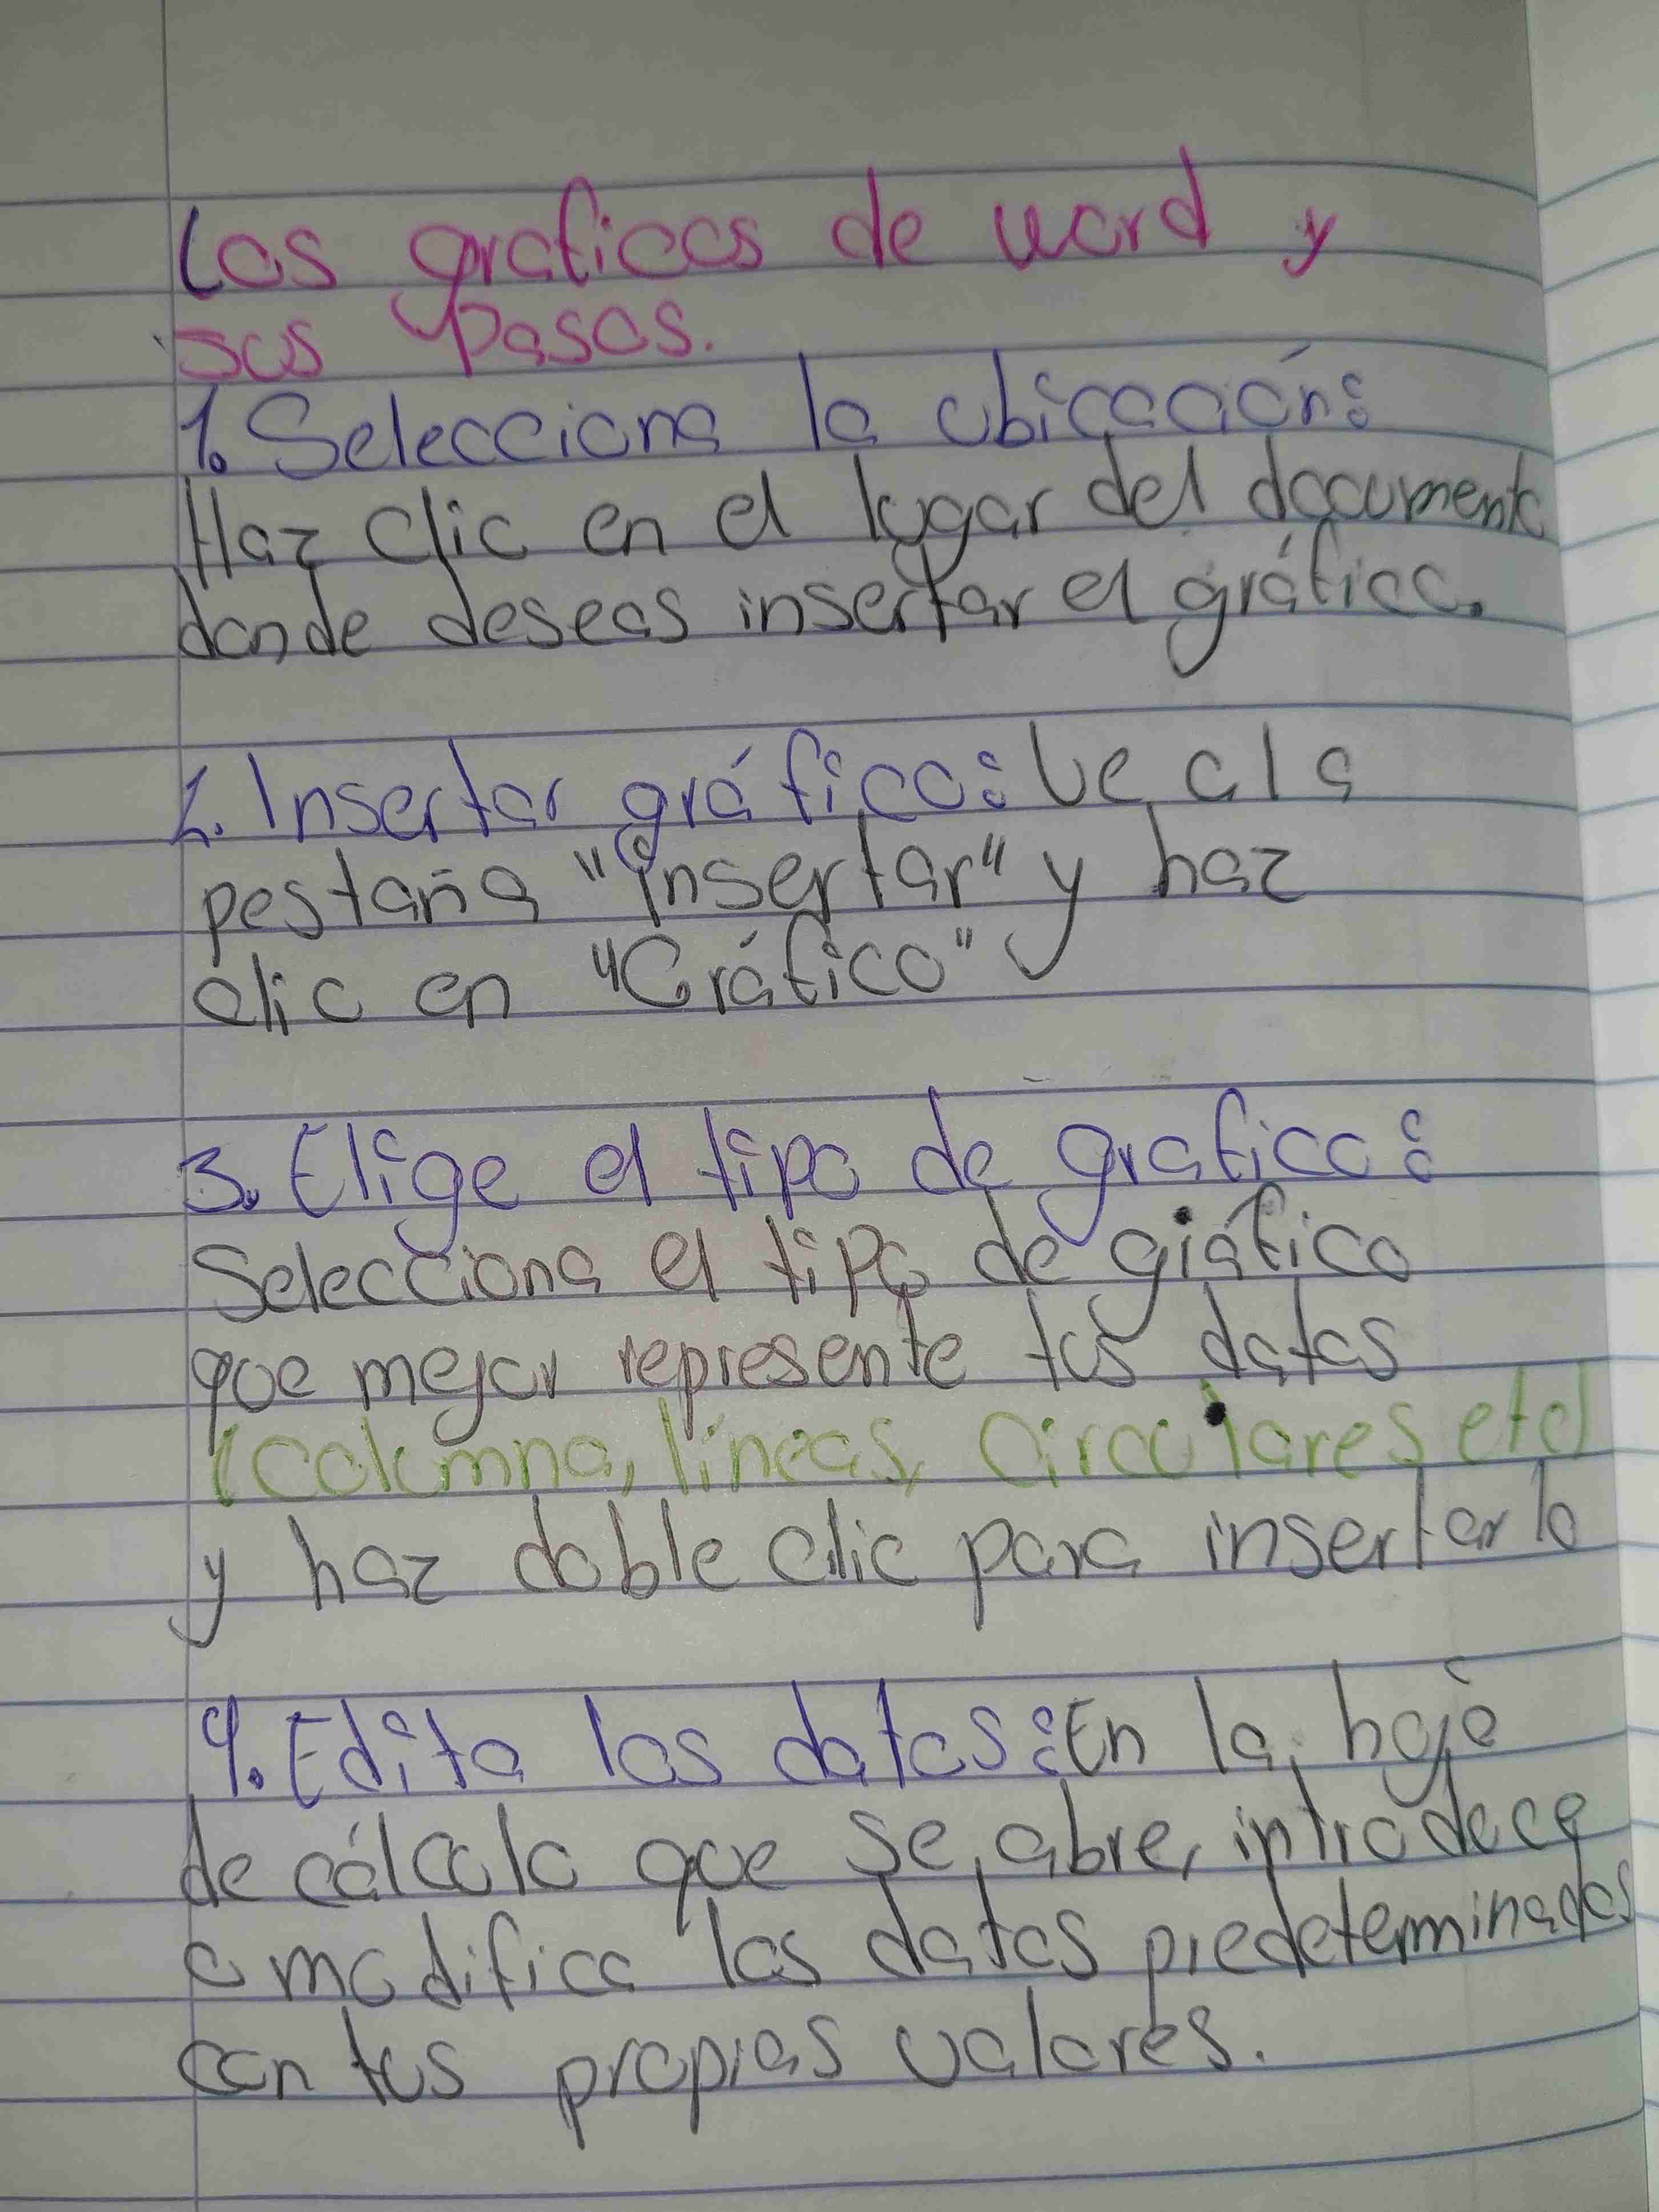 Las graficas de word y
sus pasos.
1. Selecciona la ubicación:
Haz clic en el lugar del documento
donde deseas insertar el gráfico.
2. Insertar gráfico: Ve a la
pestaña "Insertar" y haz
clic en "Gráfico"
3. Elige el tipo de grafico:
Selecciona el tipo de gráfico
que mejor represente tus datos
(columna, líneas, circulares etc)
y haz doble clic para insertarlo
4. Edita los datos: En la hoja
de cálculo que se abre, introduce
o modifica los datos predeterminados
con tus propios valores.